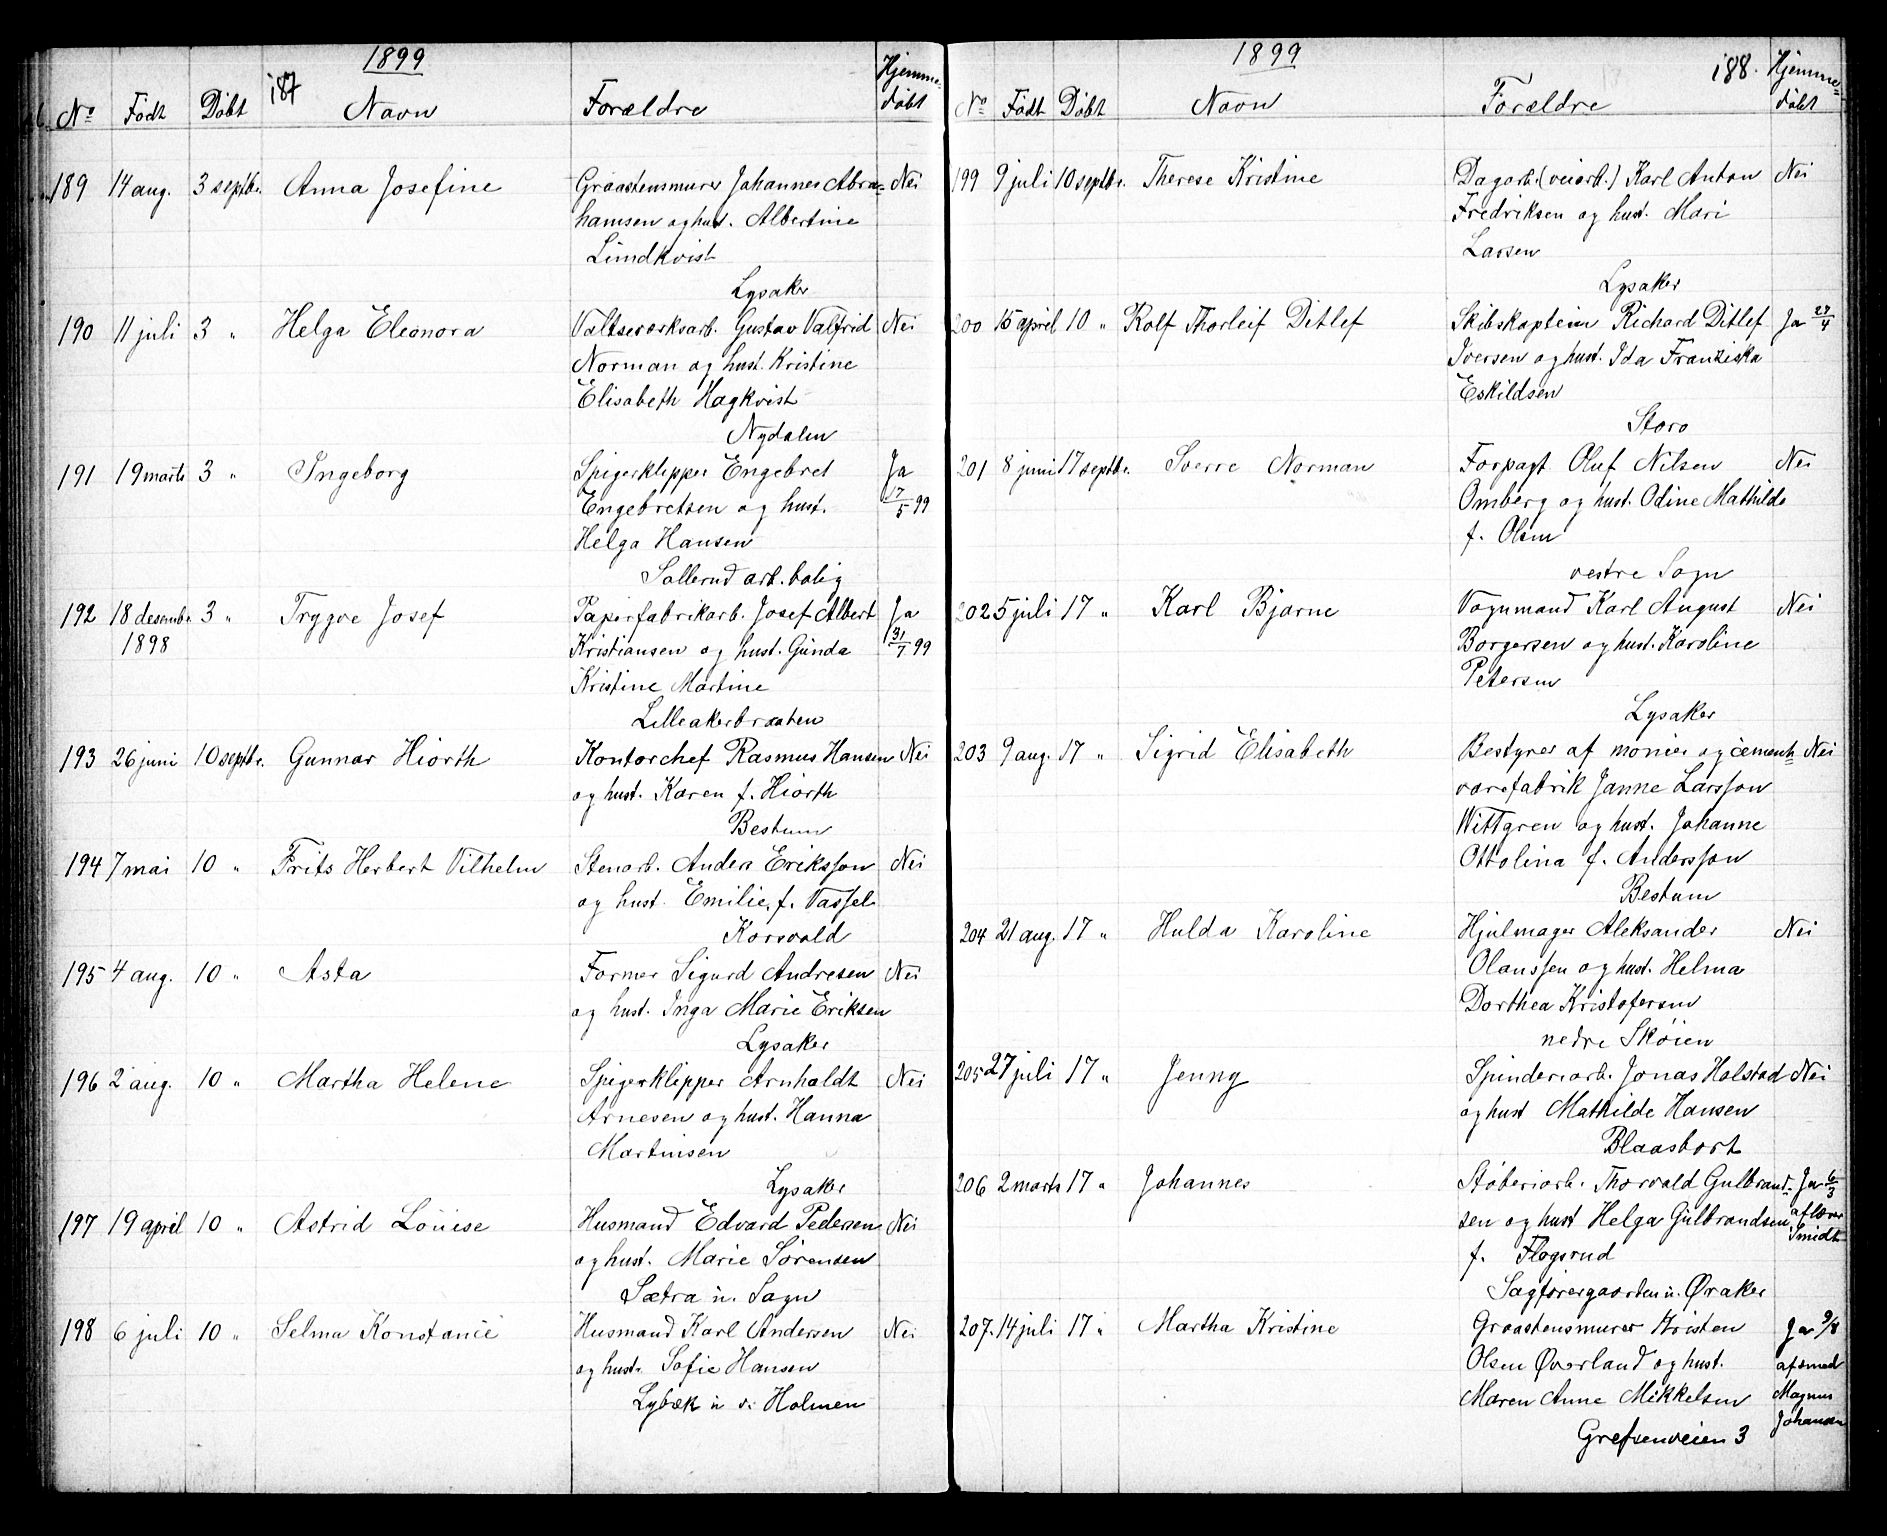 1899
187
No Født Døbt Navn Forældre Hjemme-
døbt
189 14 aug. 3 septbr. Anna Josefine Graastensmurer Johannes Abra= Nei
hamsen og hust. Albertine
Lindkvist
Lysaker
190 11 juli 3 " Helga Eleonora Valtseværksarb. Gustav Valfrid Nei
Norman og hust. Kristine
Elisabeth Hagkvist
Nydalen
191 19 marts 3 " Ingeborg Spigerklipper Engebret Ja
Engebretsen og hust. 17/5 99
Helga Hansen
Sollerud arb. bolig
192 18 desembr. 3 " Trygve Josef Papirfabrikarb. Josef Albert Ja
1898 Kristiansen og hust. Gunda 31/7 99
Kristine Martine
Lilleakerbraaten
193 26 juni 10 septbr. Gunnar Hiorth Kontorchef Rasmus Hansen Nei
og hust. Karen f. Hiorth
Bestum
194 7 mai 10 " Frits Herbert Vilhelm Stenarb. Anders Eriksson Nei
og hust. Emilie, f. Vassel
Korsvold
195 4 aug. 10 " Asta Former Sigurd Andresen Nei
og hust. Inga Marie Eriksen
Lysaker
196 2 aug. 10 " Martha Helene Spigerklipper Arnholdt Nei
Arnesen og hust. Hanna
Martinsen
Lysaker
197 19 april 10 " Astrid Louise Husmand Edvard Pedersen Nei
og hust. Marie Sørensen
Sætra u. Sogn
198 6 juli 10 " Selma Konstance Husmand Karl Andersen Nei
og hust. Sofie Hansen
Lybæk u v. Holmen
1899
188.
No Født Døbt Navn Forældre Hjemme=
døbt
199 9 juli 10 septbr. Therese Kristine Dagarb. (veiarb.) Karl Anton Nei
Fredriksen og hust. Mari
Larsen
Lysaker
200 15 april 10 " Rolf Thorleif Ditlef Skibskaptein Richard Ditlef Ja 27/4
Iversen og hust. Ida Franziska
Eskildsen
Storo
201 8 juni 17 septbr. Sverre Norman Forpagt Oluf Nilsen Nei
Omberg og hust. Odine Mathilde
f. Olsen
vestre Sogn
202 5 juli 17 " Karl Bjarne Vognmand Karl August Nei
Borgersen og hust. Karoline
Petersen
Lysaker
203 9 aug. 17 " Sigrid Elisabeth Bestyrer af monier og cement= Nei
varefabrik Janne Larsson
Wittgren og hust. Johanne
Ottolina f. Andersson
Bestum
204 21 aug. 17 " Hulda Karoline Hjulmager Aleksander Nei
Olaussen og hust. Helma
Dorthea Kristofersen
nedre Skøien
205 27 juli 17 " Jenny Spinderiarb. Jonas Holstad Nei
og hust Mathilde Hansen
Blaasbort
206 2 marts 17 " Johannes Støberiarb. Thorvald Gulbrand- Ja 6/3
sen og hust Helga Gulbrandsen af lærer
f. Flogsrud Smidt
Sagførergaarden u. Øraker
207. 14 juli 17 " Martha Kristine Graastensmurer Kristen Ja 9/8
Olsen Øverland og hust. af smed
Maren Anne Mikkelsen Magnus
Grefsenveien 3 Johansen